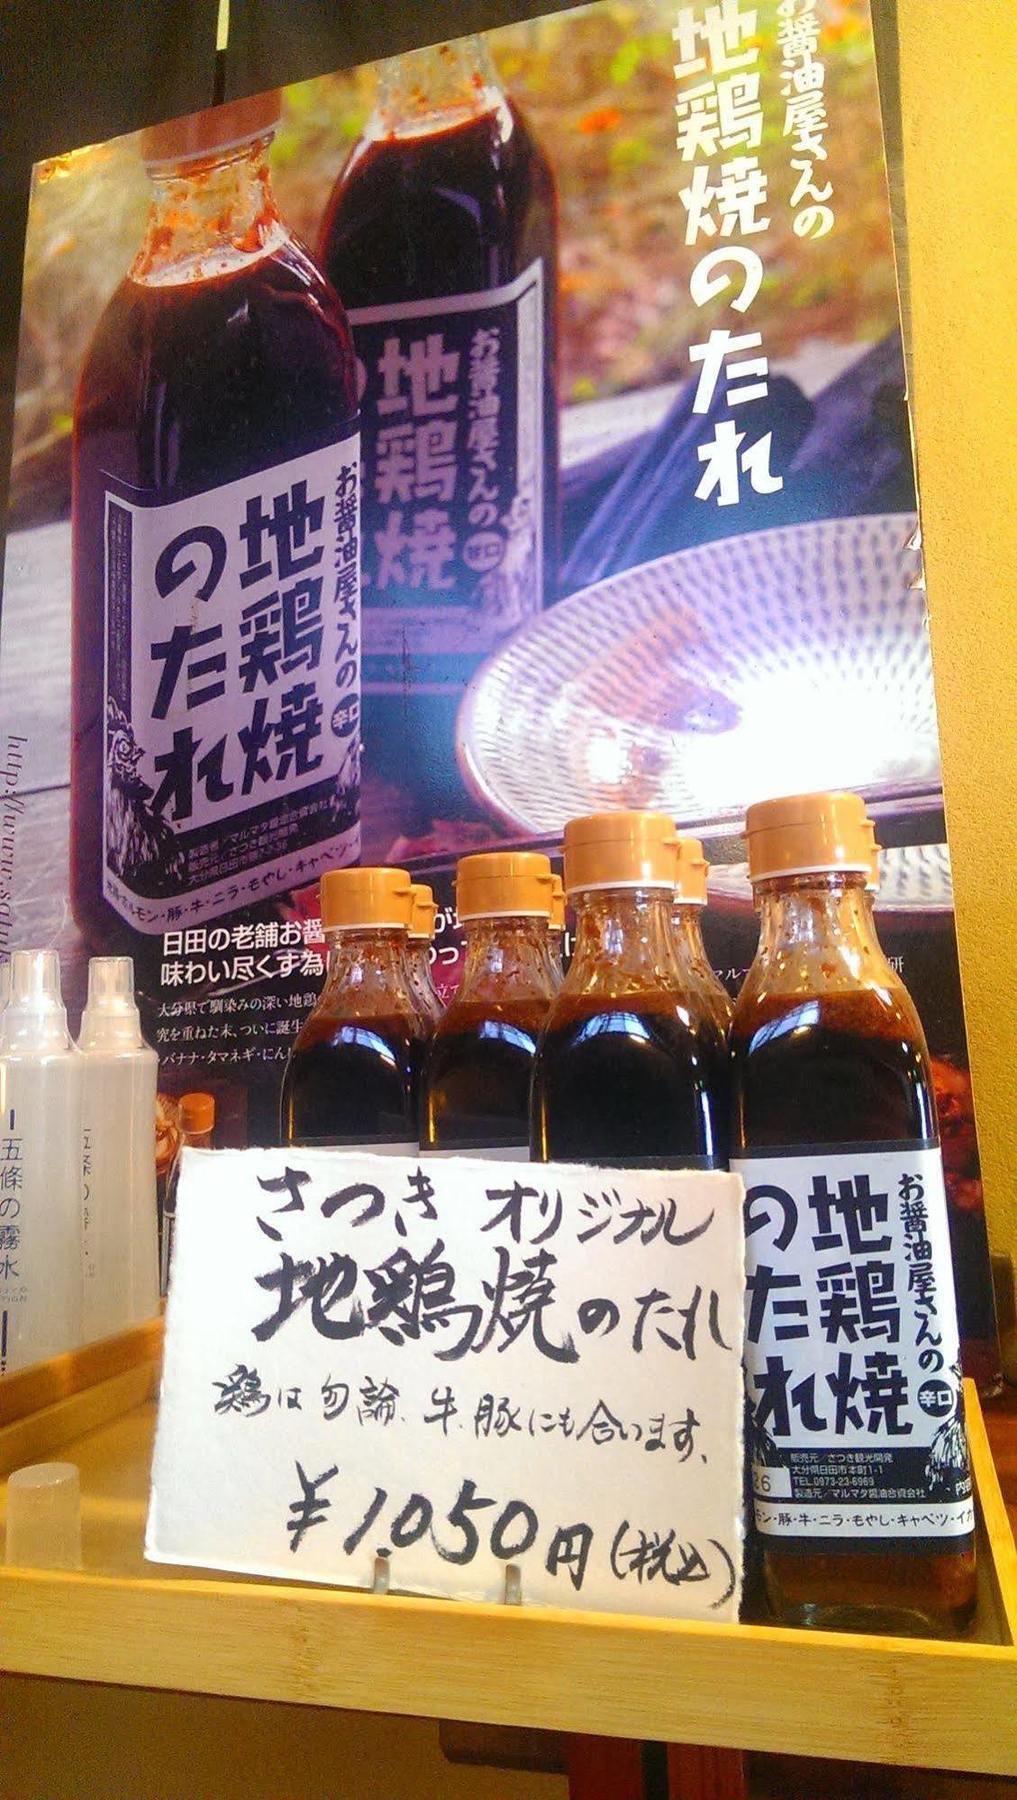 お醤油屋さんの
地鶏焼のたれ
お醤油屋さんの
甘口
地鶏焼
お醤油屋さんの
辛口
地鶏焼
のたれ
製造者／マルマタ醤油合資会社
販売元／さつき観光開発
モン・豚・牛・ニラ・もやし・キャベツ・
http://www.s
日田の老舗お醤
味わい尽くす為
大分県で馴染みの深い地鶏
究を重ねた末、ついに誕生
・バナナ・タマネギ・にん
五條の霧水
さつき オリジナル
地鶏焼のたれ
鶏は勿論、牛、豚にも合います。
¥1,050円(税込)
お醤油屋さんの
辛口
地鶏焼
のたれ
販売元／さつき観光開発
大分県日田市本町1-1
TEL.0973-23-6969
製造元／マルマタ醤油合資会社
モン・豚・牛・ニラ・もやし・キャベツ・イカ